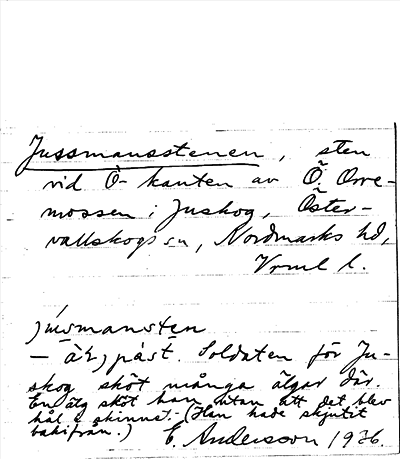 Jussmansstenen, sten
vid Ö-kanten av Ö. Orre-
mossen i Juskog, Öster-
vallskogs sn, Nordmarks hd,
Vrml l.
jusmanstẹn
– älgpást. Soldaten för Ju-
skog sköt många älgar där.
En älg sköt han utan att det blev
hål i skinnet. (Han hade skjutit
bakifrån.) E. Andersson 1936.